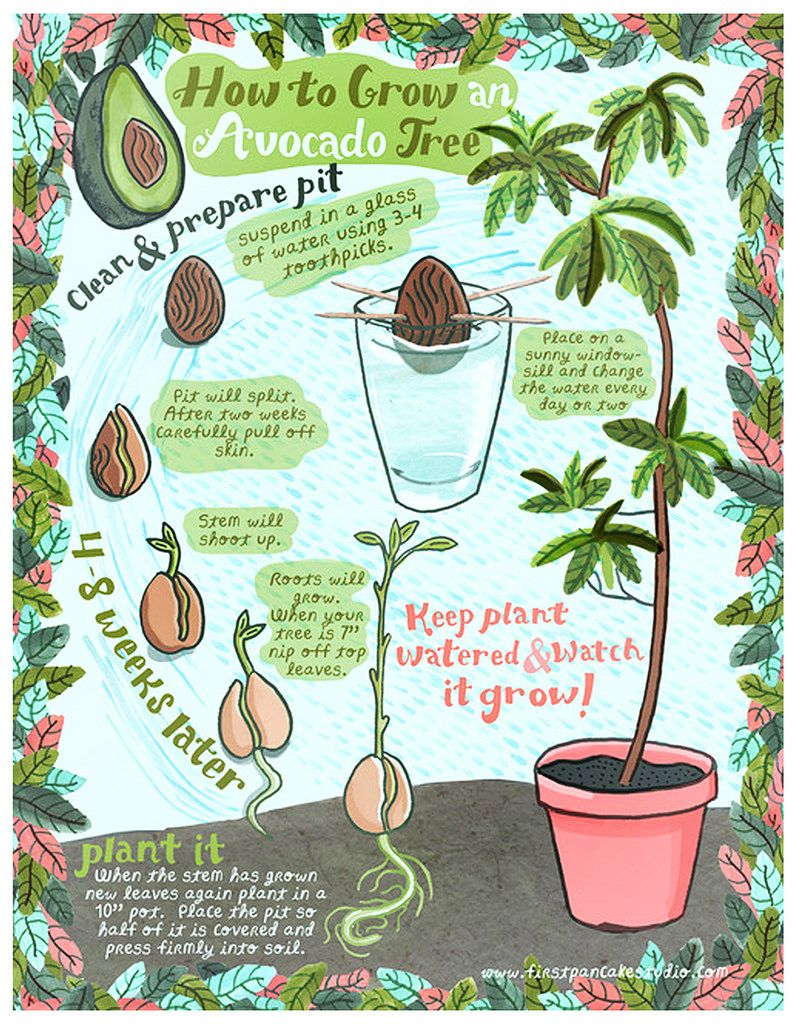 How to Grow an
Avocado Tree
Clean & prepare pit
suspend in a glass
of water using 3-4
toothpicks.
Place on a
sunny window-
sill and change
the water every
day or two
Pit will split.
After two weeks
carefully pull off
skin.
Stem will
shoot up.
4-8 weeks later
Roots will
grow.
When your
tree is 7"
nip off top
leaves.
Keep plant
watered & watch
it grow!
plant it
When the stem has grown
new leaves again plant in a
10" pot. Place the pit so
half of it is covered and
press firmly into soil.
www.firstpancakestudio.com